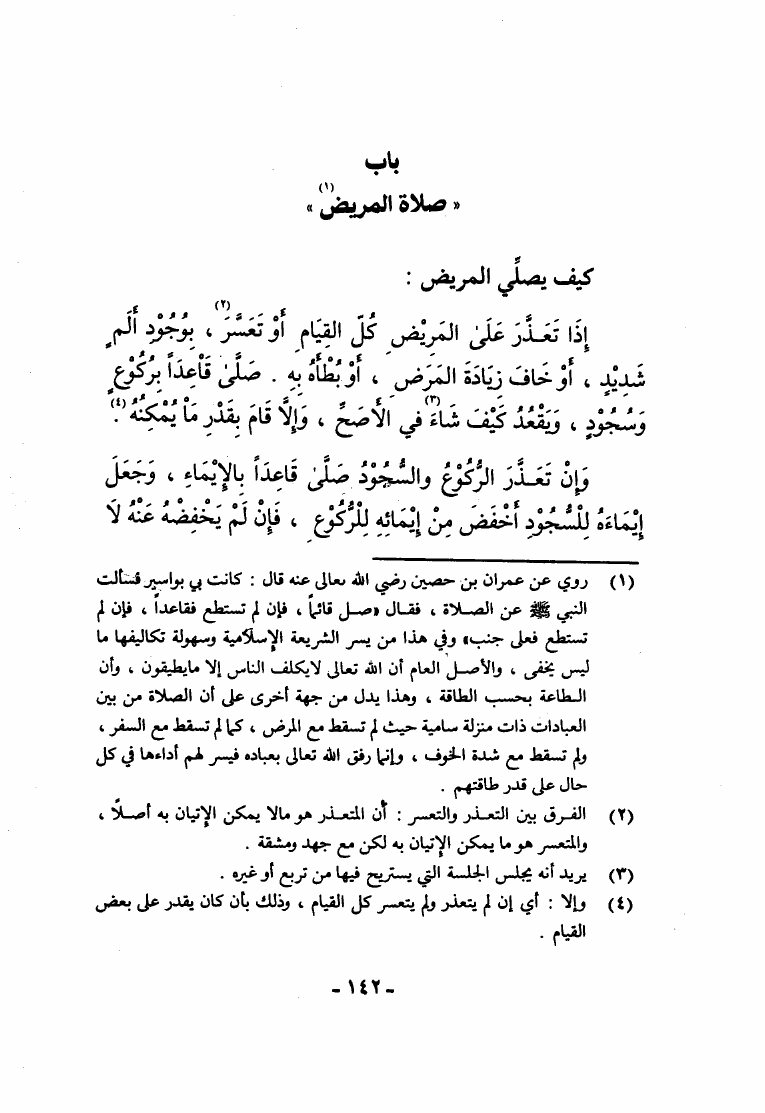 باب
« صلاة المريض(١) »
كيف يصلِّي المريض :
إِذَا تَعَـذَّرَ عَلَىٰ المَرِيْضِ كُلّ القِيَامِ أَوْ تَعَسَّرَ(٢) ، بِوُجُوْدِ أَلَمٍ
شَدِيْدٍ ، أَوْ خَافَ زِيَادَةَ المَرَضِ ، أَوْ بُطْأَهُ بِهِ . صَلَّىٰ قَاْعِدَاً بِرُكُوْعٍ
وَسُجُوْدٍ ، وَيَقْعُدُ كَيْفَ شَاءَ(٣) في الأَصَحِّ ، وَإِلَّا قَامَ بِقَدْرِ مَاْ يُمْكِنُهُ(٤) .
وَإِنْ تَعَـذَّرَ الرُّكُوْعُ والسُّجُوْدُ صَلَّىٰ قَاعِدَاً بِالإِيْمَاءِ ، وَجَعَلَ
إِيْمَاءَهُ لِلسُّجُودِ أَخْفَضَ مِنْ إِيْمَائِهِ لِلرُّكُوْعِ ، فَإِنْ لَمْ يَخْفِضْهُ عَنْهُ لَا
(١) روي عن عمران بن حصين رضي الله تعالى عنه قال : كانت بي بواسير فسألت
النبي ﷺ عن الصـلاة ، فقـال «صـل قائماً ، فإن لم تستطع فقاعداً ، فإن لم
تستطع فعلى جنب» وفي هذا من يسر الشريعة الإسلامية وسهولة تكاليفها ما
ليس يخفى ، والأصـل العام أن الله تعالى لايكلف الناس إلا مايطيقون ، وأن
الـطاعة بحسب الطاقة ، وهذا يدل من جهة أخرى على أن الصلاة من بين
العبادات ذات منزلة سامية حيث لم تسقط مع المرض ، كما لم تسقط مع السفر ،
ولم تسقط مع شدة الخوف ، وإنما رفق الله تعالى بعباده فيسر لهم أداءها في كل
حال على قدر طاقتهم .
(٢) الفـرق بين التعـذر والتعسر : أن المتعـذر هو مالا يمكن الإتيان به أصـلاً ،
والمتعسر هو ما يمكن الإتيان به لكن مع جهد ومشقة .
(٣) يريد أنه يجلس الجلسة التي يستريح فيها من تربع أو غيره .
(٤) وإلا : أي إن لم يتعذر ولم يتعسر كل القيام ، وذلك بأن كان يقدر على بعض
القيام .
- ١٤٢ -